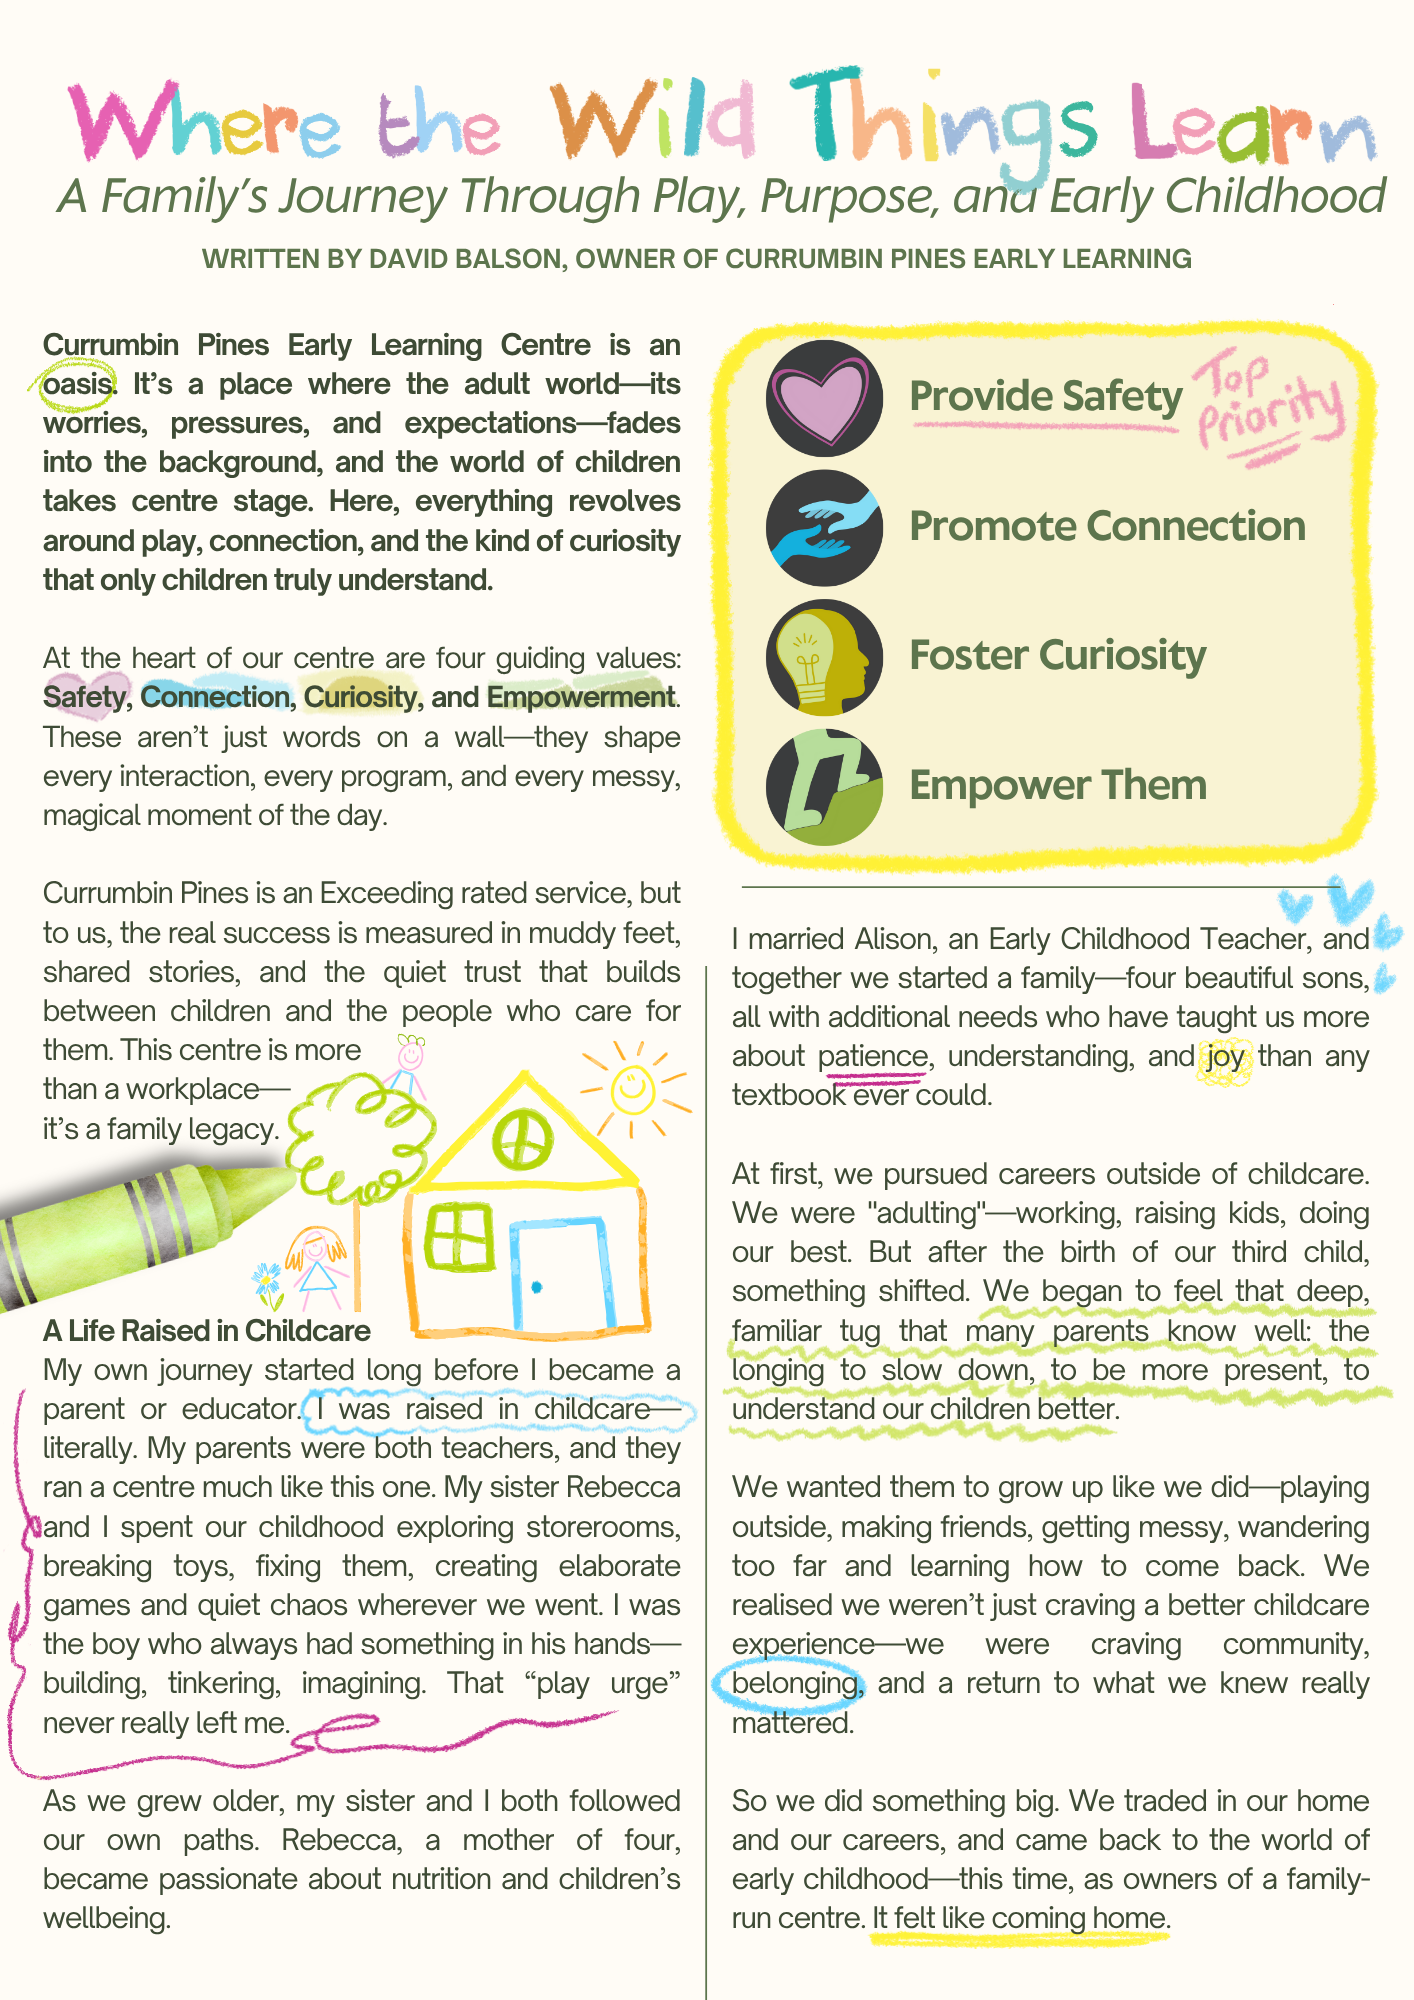 Where the Wild Things Learn
A Family's Journey Through Play, Purpose, and Early Childhood
WRITTEN BY DAVID BALSON, OWNER OF CURRUMBIN PINES EARLY LEARNING
Currumbin Pines Early Learning Centre is an
oasis. It's a place where the adult world—its
worries, pressures, and expectations—fades
into the background, and the world of children
takes centre stage. Here, everything revolves
around play, connection, and the kind of curiosity
that only children truly understand.
At the heart of our centre are four guiding values:
Safety, Connection, Curiosity, and Empowerment.
These aren't just words on a wall—they shape
every interaction, every program, and every messy,
magical moment of the day.
Currumbin Pines is an Exceeding rated service, but
to us, the real success is measured in muddy feet,
shared stories, and the quiet trust that builds
between children and the people who care for
them. This centre is more
than a workplace—
it's a family legacy.
A Life Raised in Childcare
My own journey started long before I became a
parent or educator. I was raised in childcare—
literally. My parents were both teachers, and they
ran a centre much like this one. My sister Rebecca
and I spent our childhood exploring storerooms,
breaking toys, fixing them, creating elaborate
games and quiet chaos wherever we went. I was
the boy who always had something in his hands—
building, tinkering, imagining. That “play urge”
never really left me.
As we grew older, my sister and I both followed
our own paths. Rebecca, a mother of four,
became passionate about nutrition and children's
wellbeing.
Provide Safety
Top
Priority
Promote Connection
Foster Curiosity
Empower Them
I married Alison, an Early Childhood Teacher, and
together we started a family—four beautiful sons,
all with additional needs who have taught us more
about patience, understanding, and joy than any
textbook ever could.
At first, we pursued careers outside of childcare.
We were "adulting"—working, raising kids, doing
our best. But after the birth of our third child,
something shifted. We began to feel that deep,
familiar tug that many parents know well: the
longing to slow down, to be more present, to
understand our children better.
We wanted them to grow up like we did—playing
outside, making friends, getting messy, wandering
too far and learning how to come back. We
realised we weren't just craving a better childcare
experience—we were craving community,
belonging, and a return to what we knew really
mattered.
So we did something big. We traded in our home
and our careers, and came back to the world of
early childhood—this time, as owners of a family-
run centre. It felt like coming home.